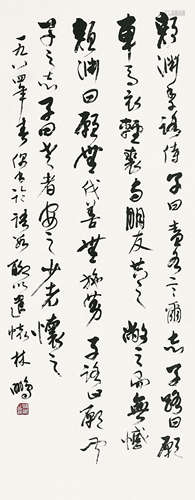 颜渊季路侍子曰盍各言尔志子路曰愿
车马衣轻裘与朋友共之敝之而无憾
颜渊曰愿无伐善无施劳子路曰愿闻
子之志子曰老者安之少者怀之
一九八四年春偶书于诸羽聊以遣怀林鹏